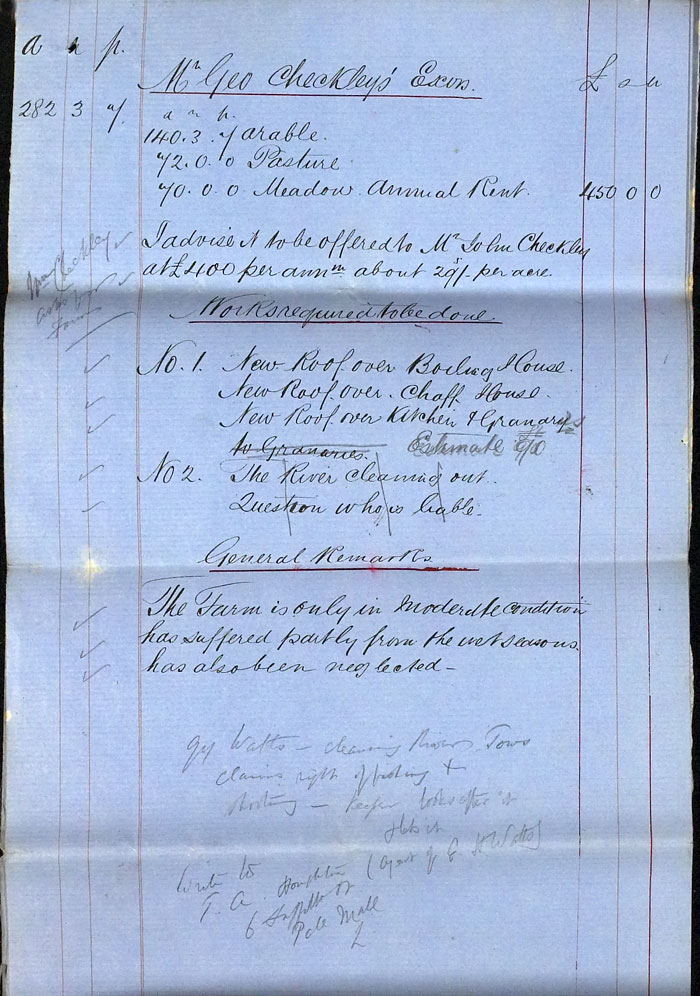 a r p.
Mr Geo Checkley's Exors. £ s d
282 3 7
a r p.
140. 3. 7 arable.
72. 0. 0 Pasture
70. 0. 0 Meadow. Annual Rent. 450 0 0
I advise it to be offered to Mr John Checkley
at £400 per annm about 29/- per acre
Checkley
Farm
Works required to be done
No. 1. New Roof over Boiling House.
New Roof over Chaff House.
New Roof over Kitchen & Granary
to Granaries. Estimate
No 2. The River cleaning out.
Question who is liable.
General Remarks
The Farm is only in moderate condition
has suffered partly from the wet seasons
has also been neglected -
Watts - cleaning River. Town
claims right of fishing +
shooting - Keeper looks after it
Write to
T. A. Houghton (agent of E Watts)
6 Suffolk St
Pall Mall